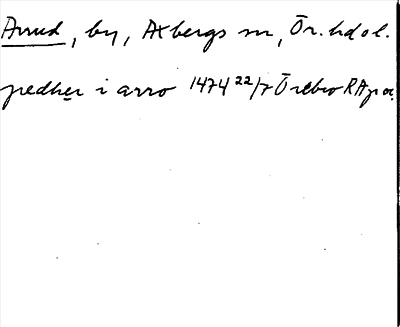 Arrud, by, Axbergs sn, Ör. hd o l.
pedher i arro 1474 22/7 Örebro RAp or.